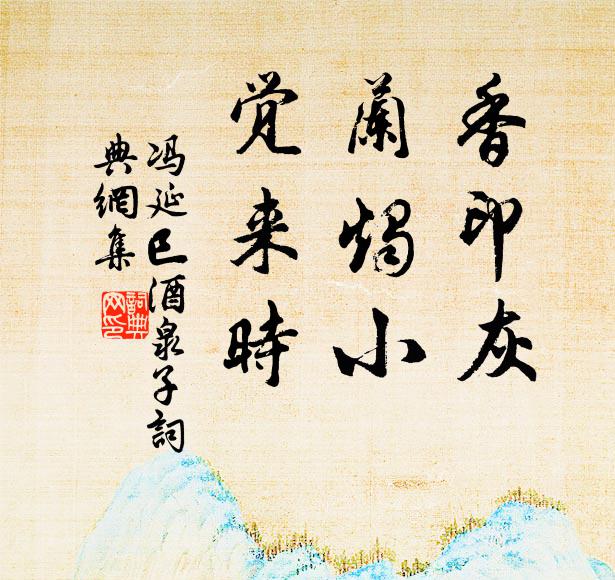 香印灰
蘭燭小
觉来時
冯延巳酒泉子詞
典網集
詞典
网印